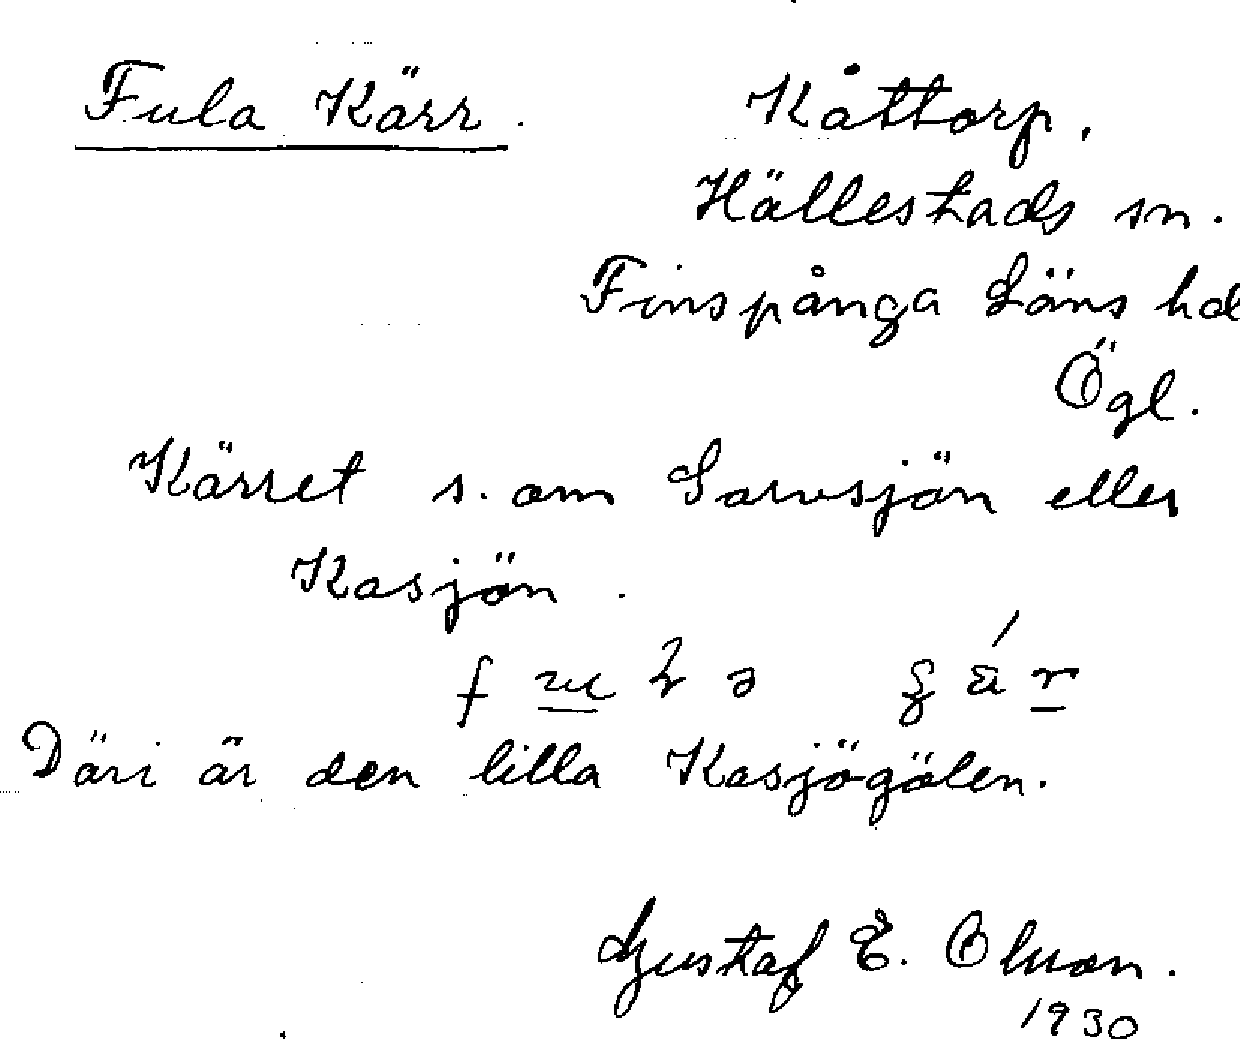 Fula Kärr. Kåttorp,
Hällestads sn.
Finspånga Läns hd
Ögl.
Kärret s. om Sarvsjön eller
Kasjön.
Däri är den lilla Kasjögölen.
Gustaf E. Olson.
1930